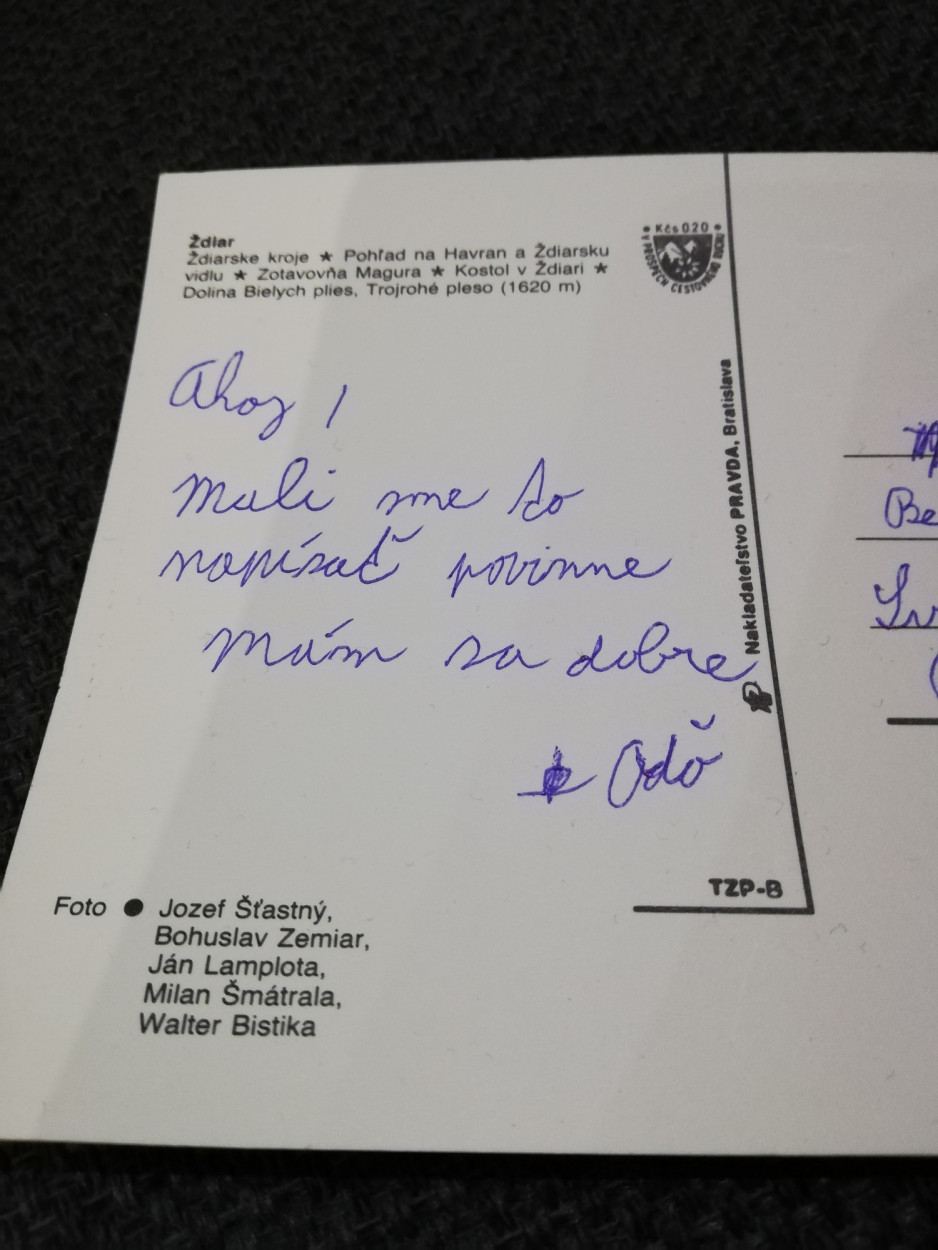 Ždiar
Ždiarske kroje ★ Pohľad na Havran a Ždiarsku
vidlu ★ Zotavovňa Magura ★ Kostol v Ždiari ★
Dolina Bielych plies, Trojrohé pleso (1620 m)
Kčs 020
V PROSPECH CESTOVNÉHO RUCHU
Ahoj!
Mali sme to
napísať povinne
Mám sa dobre
Oďo
Nakladateľstvo PRAVDA, Bratislava
TZP-B
Foto ● Jozef Šťastný,
Bohuslav Zemiar,
Ján Lamplota,
Milan Šmátrala,
Walter Bistika
Be